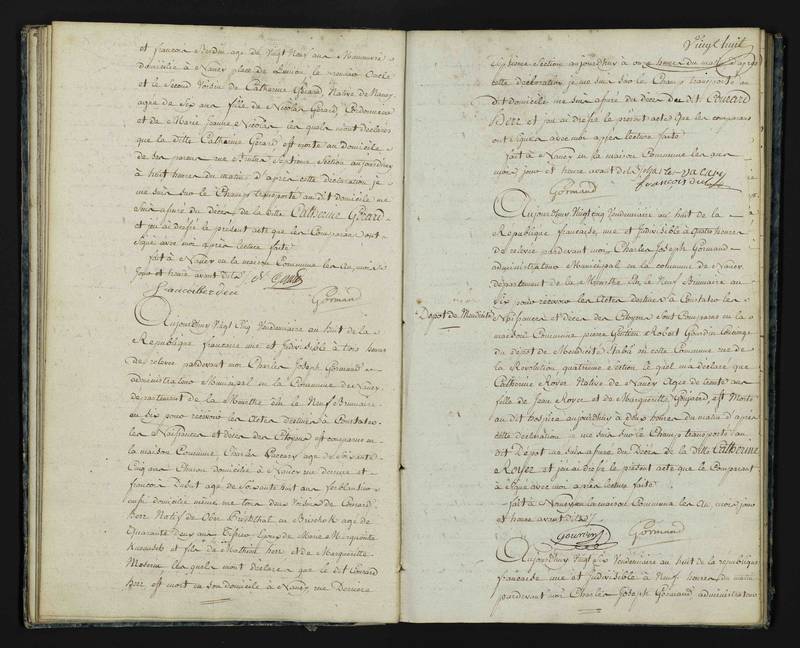 et françois Verdin age de Vingt Neuf ans Manœuvre
domicilié à Nancy place de l'union, le premier oncle
et le Second Voisin de Catherine Gérard, Native de Nancy
agée de Six ans fille de Nicolas Gérard, Cordonnier
et de Marie jeanne Nicolas les quels m'ont déclarés
que la ditte Catherine Gérard est morte au domicile
de ses parens rue Section aujourdhuy
à huit heures du matin d'après cette déclaration je
me suis sur le Champ transporté au dit domicile me
suis assuré du décès de la ditte Catherine Gérard
et j'ai dressé le présent acte que les Comparans ont
Signé avec moi après lecture faite
fait à Nancy en la maison Commune les an, mois
jour et heure avant dits
Gormand
Aujourdhuy Vingt Cinq Vendemiaire an huit de la
République francoise une et Indivisible à trois heures
de relevée pardevant moi Charles Joseph Gormand
administrateur Municipal en la Commune de Nancy
département de la Meurthe élu le Neuf Brumaire
an Six pour recevoir les Actes destinés à Constater
les Naissances et décès des Citoyens est comparus en
la maison Commune, Charles agé de Soixante
Cinq ans domicilié à Nancy rue derrière et
françois Dubut agé de Soixante huit ans ferblantier
aussi domicilié même rue tous deux Voisins de Conrard
Berr Natif de en agé de
quarante deux ans Epoux de Marie Marguerite
et fils de Mathieu Berr et de Marguerite
les quels m'ont déclaré que le dit Conrard
Berr est mort en son domicile à Nancy rue Derriere
Vingt huit
Section aujourdhuy à onze heures du matin d'après
cette déclaration je me suis sur le Champ transporté au
dit domicile me suis assuré du décès du dit Conrard
Berr et j'ai dressé le present acte que les comparans
ont Signés avec moi après lecture faite
fait à Nancy en la maison Commune les an
mois jour et heure avant dits
Gormand
Aujourdhuy Vingt cinq Vendemiaire an huit de la
République francaise, une et Indivisible à quatre heures
de relevée pardevant moi, Charles Joseph Gormand
administrateur Municipal en la commune de Nancy
département de la Meurthe élu le Neuf Brumaire an
Six pour recevoir les Actes destinés à Constater les
Dépot de Mendicité
Naissances et décès des Citoyens sont Comparus en la
maison Commune pierre Robert Concierge
du dépot de Mendicité établi en cette Commune rue de
la Révolution quatrieme Section le quel m'a déclaré que
Catherine Royer Native de Nancy Agée de trente ans
fille de Jean Royer et de Marguerite est Morte
au dit hospice aujourdhuy à deux heures du matin d'après
cette déclaration je me suis sur le Champ transporté au
dit Dépot me suis assuré du Décès de la ditte Catherine
Royer et j'ai dressé le présent acte que le Comparant
à Signé avec moi après lecture faite
fait à Nancy en la maison Commune les an, mois jour
et heure avant dits
Gormand
Aujourdhuy Vingt Six Vendemiaire an huit de la république
francaise une et Indivisible à Neuf heures du matin
pardevant moi Charles Joseph Gormand administrateur